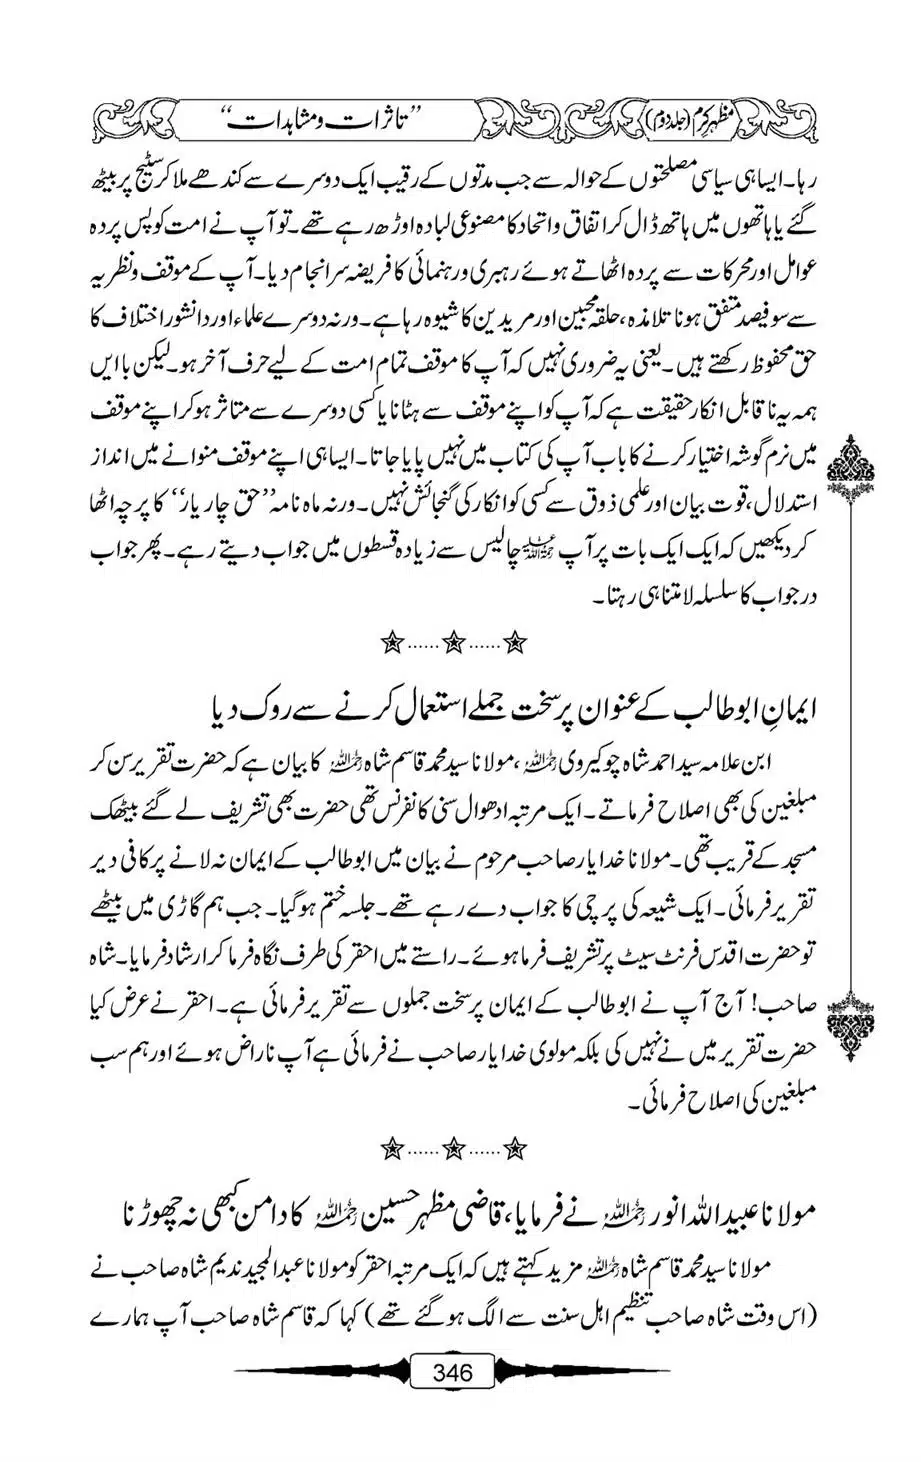 مظہرِ کرم (جلد دوم)
”تاثرات و مشاہدات“
رہا۔ ایسا ہی سیاسی مصلحتوں کے حوالہ سے جب مدتوں کے رقیب ایک دوسرے سے کندھے ملا کر سٹیج پر بیٹھ
گئے یا ہاتھوں میں ہاتھ ڈال کر اتفاق و اتحاد کا مصنوعی لبادہ اوڑھ رہے تھے۔ تو آپ نے امت کو پس پردہ
عوامل اور محرکات سے پردہ اٹھاتے ہوئے رہبری و رہنمائی کا فریضہ سر انجام دیا۔ آپ کے موقف و نظریہ
سے سو فیصد متفق ہونا تلامذہ، حلقہ محبین اور مریدین کا شیوہ رہا ہے۔ ورنہ دوسرے علماء اور دانشور اختلاف کا
حق محفوظ رکھتے ہیں۔ یعنی یہ ضروری نہیں کہ آپ کا موقف تمام امت کے لیے حرف آخر ہو۔ لیکن باایں
ہمہ یہ ناقابل انکار حقیقت ہے کہ آپ کو اپنے موقف سے ہٹانا یا کسی دوسرے سے متاثر ہو کر اپنے موقف
میں نرم گوشہ اختیار کرنے کا باب آپ کی کتاب میں نہیں پایا جاتا۔ ایسا ہی اپنے موقف منوانے میں انداز
استدلال، قوت بیان اور علمی ذوق سے کسی کو انکار کی گنجائش نہیں۔ ورنہ ماہ نامہ ”حق چار یار“ کا پرچہ اٹھا
کر دیکھیں کہ ایک ایک بات پر آپ رحمۃ اللہ علیہ چالیس سے زیادہ قسطوں میں جواب دیتے رہے۔ پھر جواب
در جواب کا سلسلہ لامتناہی رہتا۔
ایمانِ ابوطالب کے عنوان پر سخت جملے استعمال کرنے سے روک دیا
ابن علامہ سید احمد شاہ چوکیروی رحمہ اللہ، مولانا سید محمد قاسم شاہ رحمہ اللہ کا بیان ہے کہ حضرت تقریر سن کر
مبلغین کی بھی اصلاح فرماتے۔ ایک مرتبہ ادھوال سنی کانفرنس تھی حضرت بھی تشریف لے گئے بیٹھک
مسجد کے قریب تھی۔ مولانا خدا یار صاحب مرحوم نے بیان میں ابوطالب کے ایمان نہ لانے پر کافی دیر
تقریر فرمائی۔ ایک شیعہ کی پرچی کا جواب دے رہے تھے۔ جلسہ ختم ہو گیا۔ جب ہم گاڑی میں بیٹھے
تو حضرت اقدس فرنٹ سیٹ پر تشریف فرما ہوئے۔ راستے میں احقر کی طرف نگاہ فرما کر ارشاد فرمایا۔ شاہ
صاحب! آج آپ نے ابوطالب کے ایمان پر سخت جملوں سے تقریر فرمائی ہے۔ احقر نے عرض کیا
حضرت تقریر میں نے نہیں کی بلکہ مولوی خدا یار صاحب نے فرمائی ہے آپ ناراض ہوئے اور ہم سب
مبلغین کی اصلاح فرمائی۔
مولانا عبید اللہ انور رحمہ اللہ نے فرمایا، قاضی مظہر حسین رحمہ اللہ کا دامن کبھی نہ چھوڑنا
مولانا سید محمد قاسم شاہ رحمہ اللہ مزید کہتے ہیں کہ ایک مرتبہ احقر کو مولانا عبدالمجید ندیم شاہ صاحب نے
(اس وقت شاہ صاحب تنظیم اہل سنت سے الگ ہو گئے تھے) کہا کہ قاسم شاہ صاحب آپ ہمارے
346